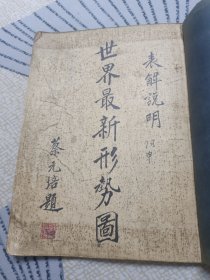 表解説明
世界最新形勢圖
蔡元培題